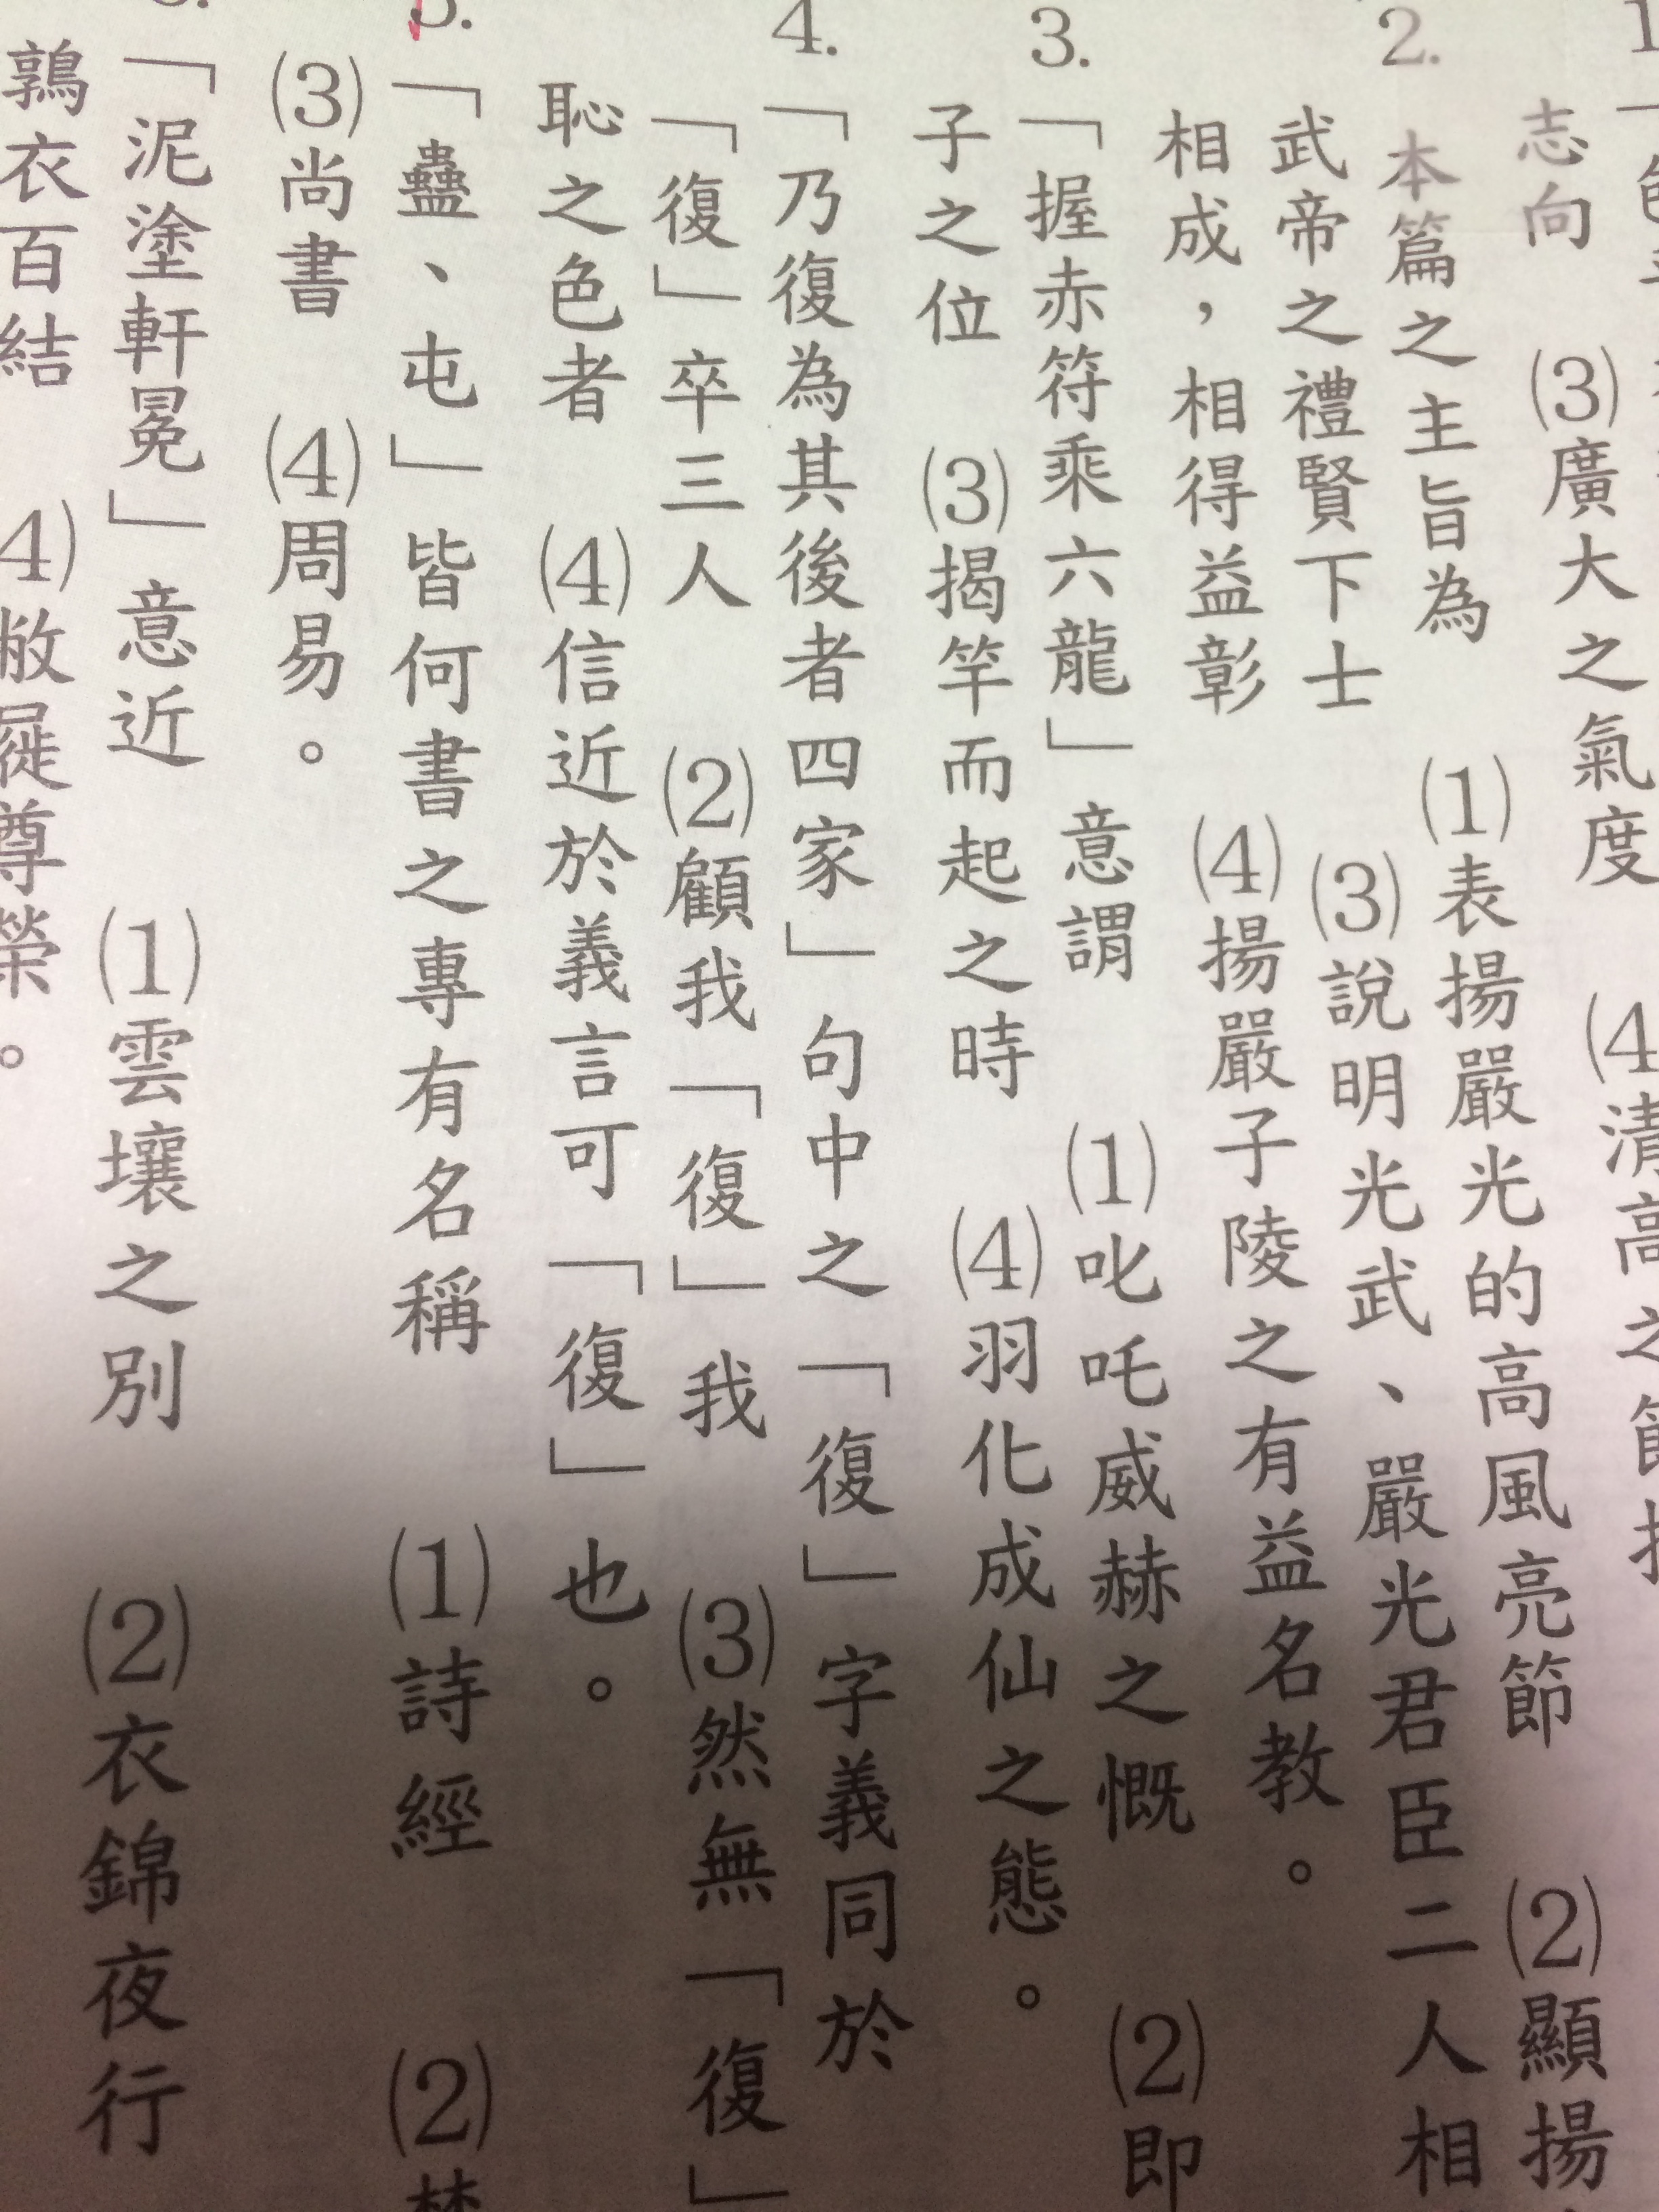 志向　⑶廣大之氣度　⑷清高之
2. 本篇之主旨為　⑴表揚嚴光的高風亮節　⑵顯揚
武帝之禮賢下士　⑶說明光武、嚴光君臣二人相
相成，相得益彰　⑷揚嚴子陵之有益名教。
3. 「握赤符乘六龍」意謂　⑴叱吒威赫之慨　⑵即
子之位　⑶揭竿而起之時　⑷羽化成仙之態。
4. 「乃復為其後者四家」句中之「復」字義同於
「復」卒三人　⑵顧我「復」我　⑶然無「復」
恥之色者　⑷信近於義言可「復」也。
5. 「蠱、屯」皆何書之專有名稱　⑴詩經　⑵
⑶尚書　⑷周易。
「泥塗軒冕」意近　⑴雲壤之別　⑵衣錦夜行
鶉衣百結　⑷敝屣尊榮。